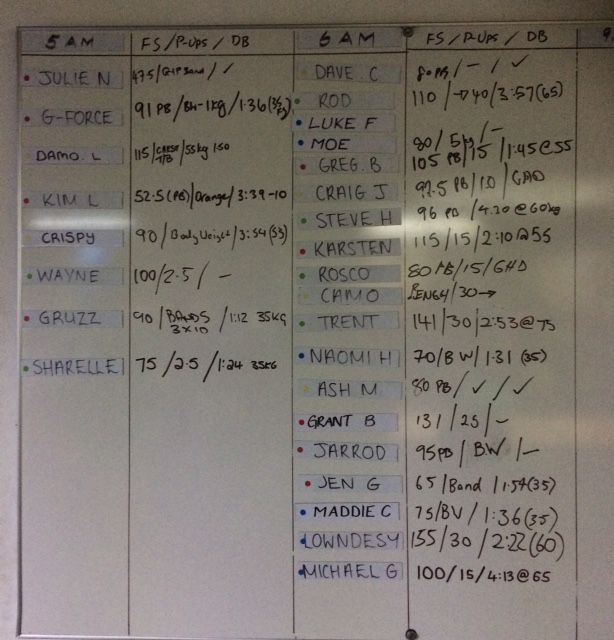 5 AM
FS / P-UPS / DB
JULIE N
G-FORCE
91 PB / BH-1kg / 1:36
DAMO. L
115 / 55kg 1:50
KIM L
52.5 (PB) / Orange / 3:39-10
CRISPY
90 / Body Weight / 3:54 (53)
WAYNE
100 / 2.5 / -
GRUZZ
90 / BANDS / 1:12 35KG
3x10
SHARELLE
75 / 2.5 / 1:24 35KG
6 AM
FS / P-UPS / DB
DAVE. C
80 PB / - / ✓
ROD
110 / →40 / 3:57 (65)
LUKE F
MOE
80 / 5kg / -
GREG. B
105 PB / 15 / 1:45 @ 55
CRAIG J
97.5 PB / 10 / GHD
STEVE H
96 PB / 4.20 @ 60kg
KARSTEN
115 / 15 / 2:10 @ 55
ROSCO
80 PB / 15 / GHD
CAMO
BENCH / 30 →
TRENT
141 / 30 / 2:53 @ 75
NAOMI H
70 / BW / 1:31 (35)
ASH M
80 PB / ✓ / ✓
GRANT B
131 / 25 / -
JARROD
95 PB / B.W / -
JEN G
65 / Band / 1:54 (35)
MADDIE C
75 / BV / 1:36 (35)
LOWNDESY
155 / 30 / 2:22 (60)
MICHAEL G
100 / 15 / 4:13 @ 65
9